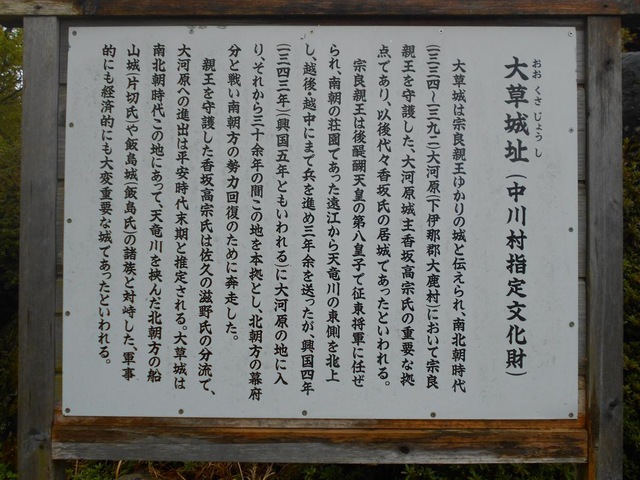 おお くさ じょう し
大草城址(中川村指定文化財)
大草城は宗良親王ゆかりの城と伝えられ、南北朝時代
(一三三四〜一三九二)大河原(下伊那郡大鹿村)において宗良
親王を守護した、大河原城主香坂高宗氏の重要な拠
点であり、以後代々香坂氏の居城であったといわれる。
宗良親王は後醍醐天皇の第八皇子で征東将軍に任ぜ
られ、南朝の荘園であった遠江から天竜川の東側を北上
し、越後・越中にまで兵を進め三年余を送ったが、興国四年
(一三四三年)(興国五年ともいわれる)に大河原の地に入
り、それから三十余年の間この地を本拠とし、北朝方の幕府
分と戦い南朝方の勢力回復のために奔走した。
親王を守護した香坂高宗氏は佐久の滋野氏の分流で、
大河原への進出は平安時代末期と推定される。大草城は
南北朝時代、この地にあって、天竜川を挟んだ北朝方の船
山城(片切氏)や飯島城(飯島氏)の諸族と対峙した、軍事
的にも経済的にも大変重要な城であったといわれる。